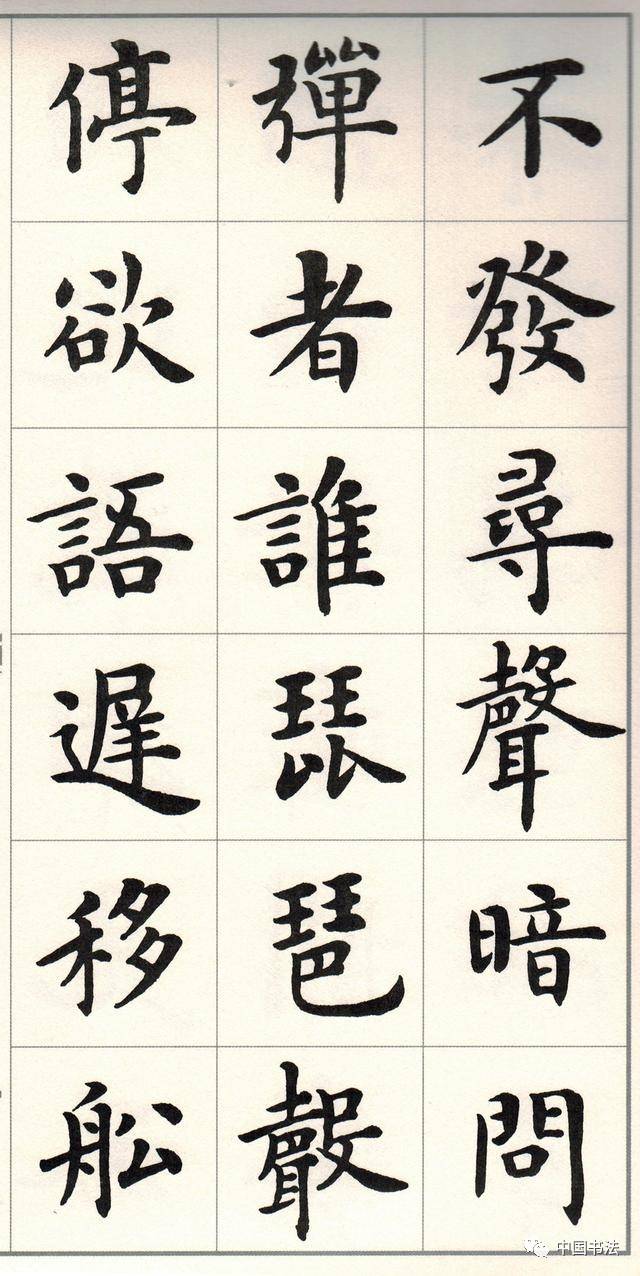 不發尋聲暗問
彈者誰琵琶聲
停欲語遲移舩
中国书法